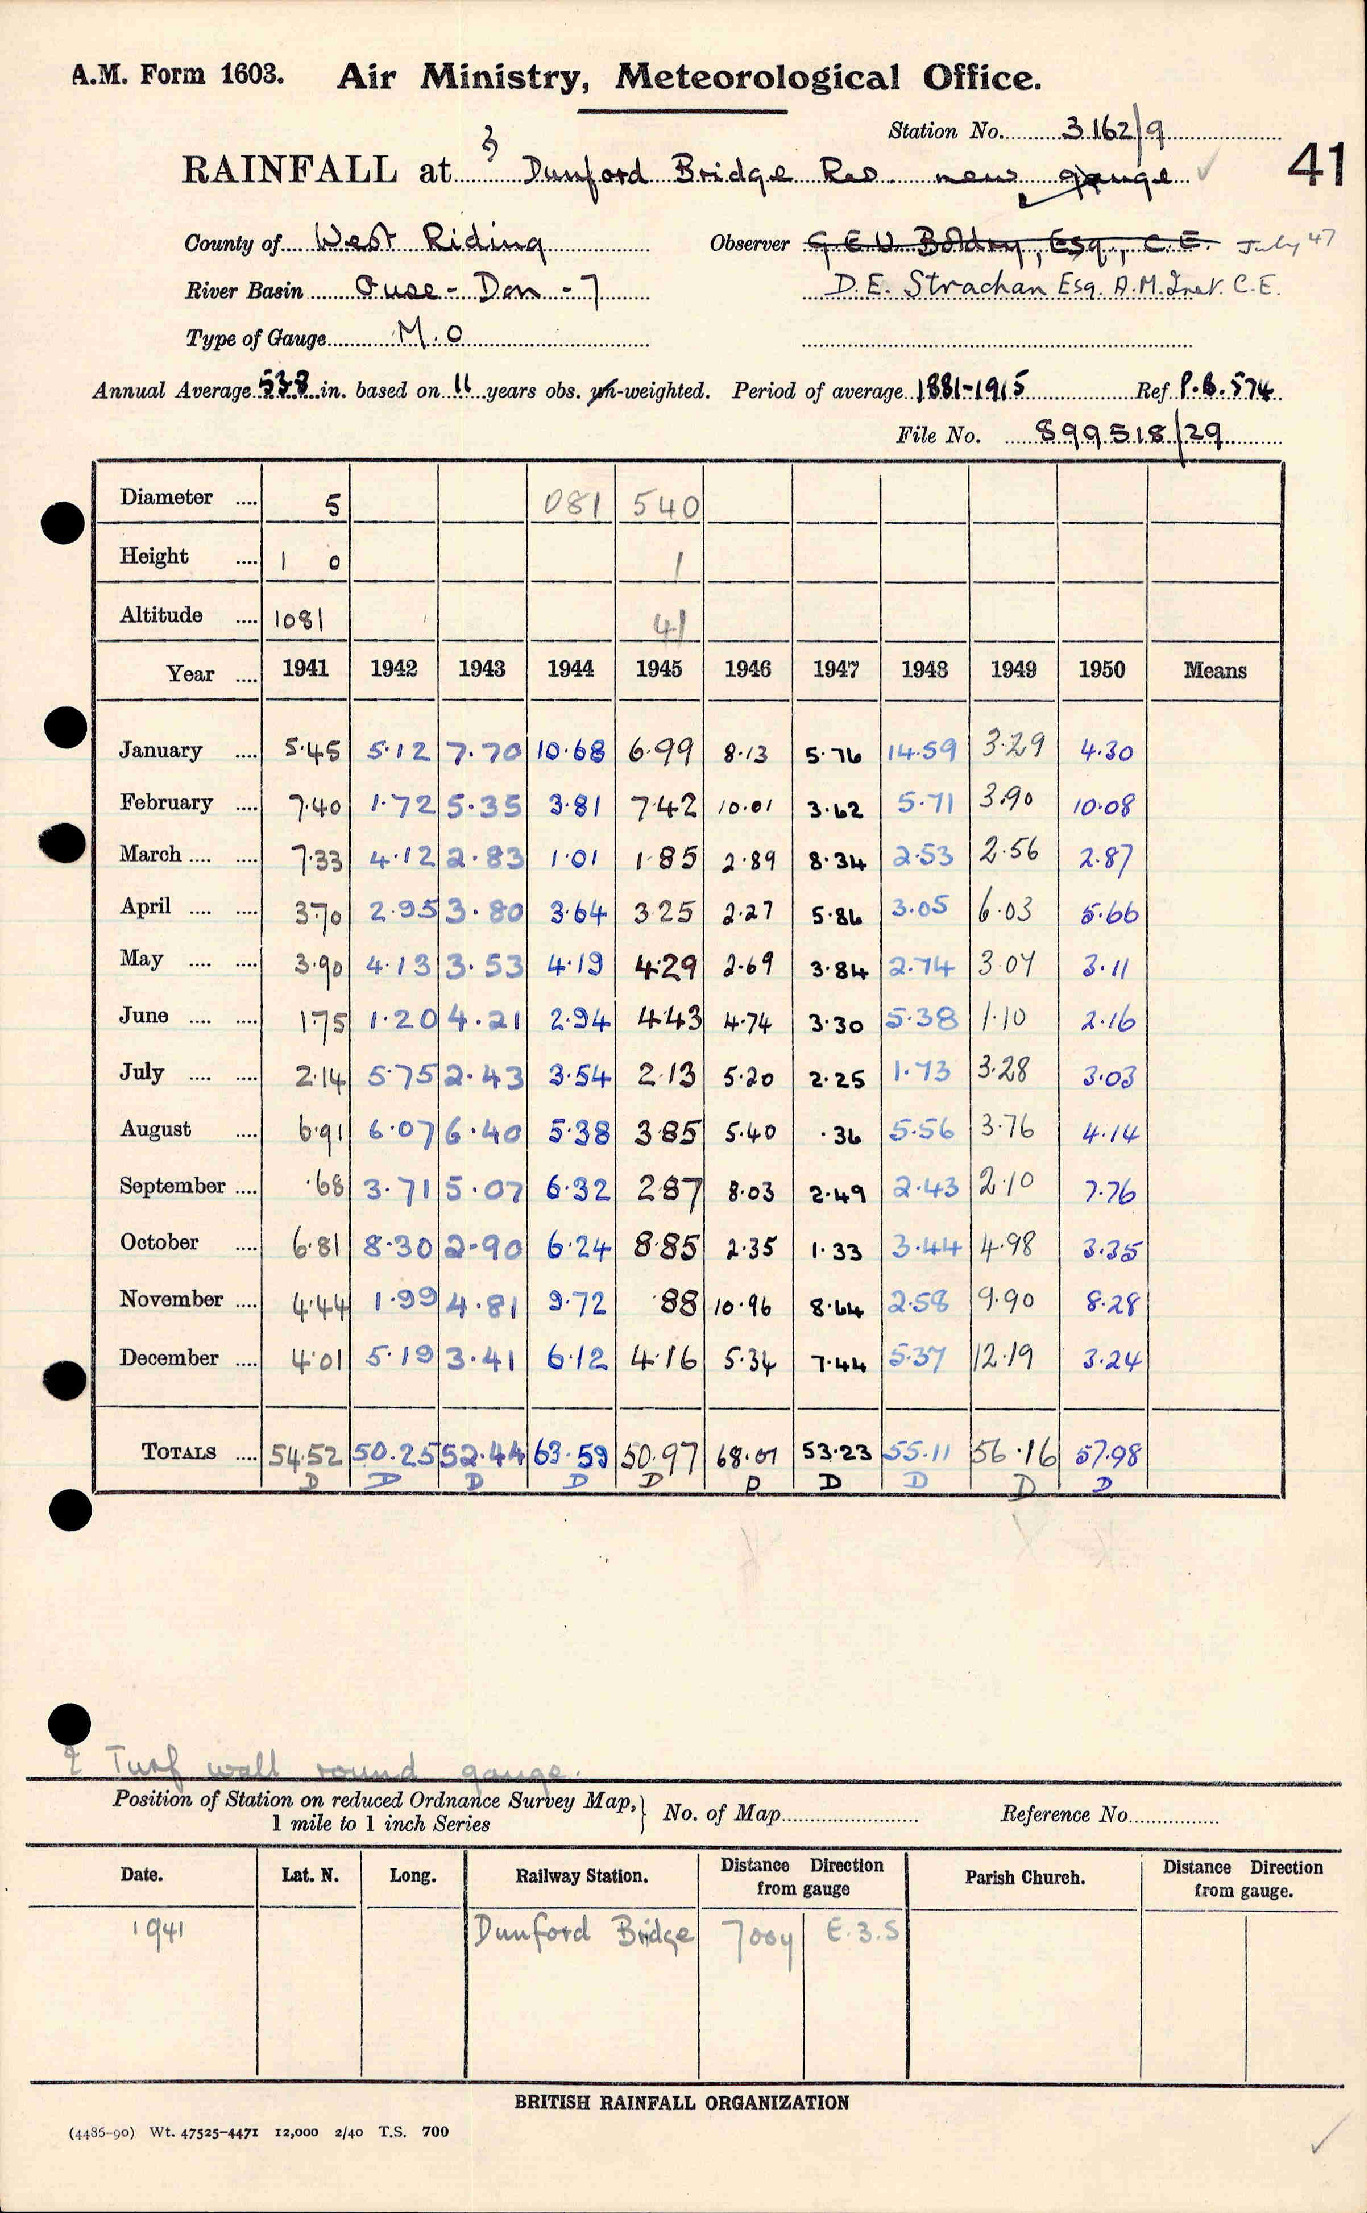 A.M. Form 1603. Air Ministry, Meteorological Office.
Station No. 3162/9
RAINFALL at Dunford Bridge Res. new gauge
41
County of West Riding Observer G.E.U. Boldry, Esq., C.E. July 47
River Basin Ouse - Don - 7 D.E. Strachan Esq. A.M.Inst. C.E.
Type of Gauge M.O
Annual Average 53.8 in. based on 11 years obs. un-weighted. Period of average 1881-1915 Ref P.B. 574
File No. 899518/29
Diameter .... 5 081 540
Height .... 1 0 1
Altitude .... 1081 41
Year .... 1941 1942 1943 1944 1945 1946 1947 1948 1949 1950 Means
January .... 5.45 5.12 7.70 10.68 6.99 8.13 5.76 14.59 3.29 4.30
February .... 7.40 1.72 5.35 3.81 7.42 10.01 3.62 5.71 3.90 10.08
March .... .... 7.33 4.12 2.83 1.01 1.85 2.89 8.34 2.53 2.56 2.87
April .... .... 3.70 2.95 3.80 3.64 3.25 2.27 5.86 3.05 6.03 5.66
May .... .... 3.90 4.13 3.53 4.19 4.29 2.69 3.84 2.74 3.04 3.11
June .... .... 1.75 1.20 4.21 2.94 4.43 4.74 3.30 5.38 1.10 2.16
July .... .... 2.14 5.75 2.43 3.54 2.13 5.20 2.25 1.73 3.28 3.03
August .... 6.91 6.07 6.40 5.38 3.85 5.40 .36 5.56 3.76 4.14
September .... .68 3.71 5.07 6.32 2.87 8.03 2.49 2.43 2.10 7.76
October .... 6.81 8.30 2.90 6.24 8.85 2.35 1.33 3.44 4.98 3.35
November .... 4.44 1.99 4.81 9.72 .88 10.96 8.64 2.58 9.90 8.28
December .... 4.01 5.19 3.41 6.12 4.16 5.34 7.44 5.37 12.19 3.24
TOTALS .... 54.52 50.25 52.44 63.59 50.97 68.01 53.23 55.11 56.16 57.98
D D D D D D D D D D
Turf wall round gauge.
Position of Station on reduced Ordnance Survey Map, } No. of Map Reference No.
1 mile to 1 inch Series
Date. Lat. N. Long. Railway Station. Distance Direction from gauge Parish Church. Distance Direction from gauge.
1941 Dunford Bridge 700y E.3.S
BRITISH RAINFALL ORGANIZATION
(4485-90) Wt. 47525-4471 12,000 2/40 T.S. 700